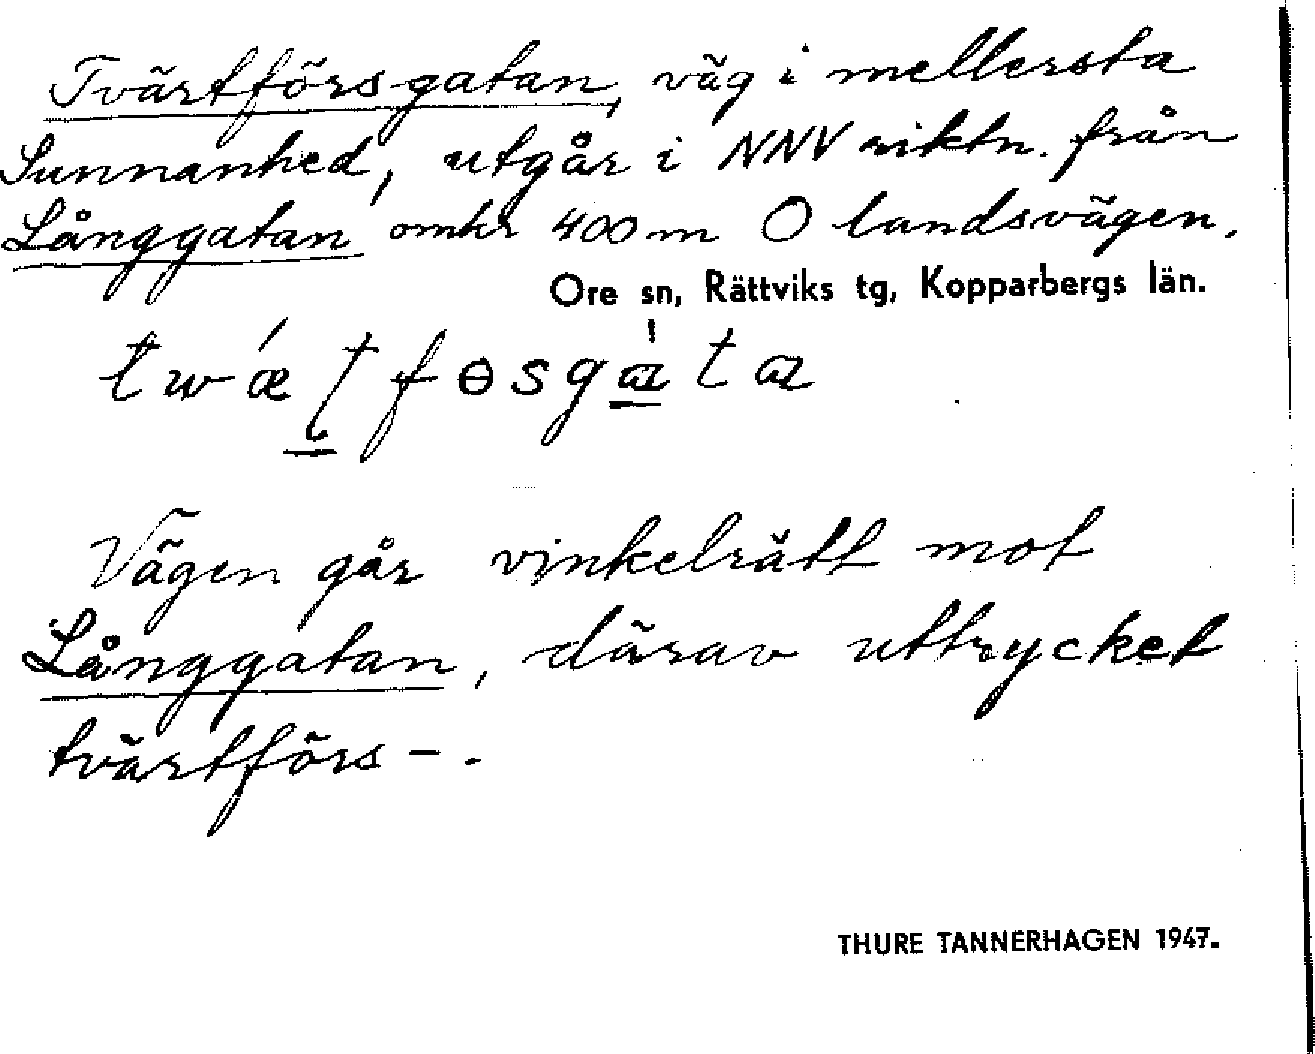 Tvärtförsgatan, väg i mellersta
Sunnanhed, utgår i NNV riktn. från
Långgatan omkr 400 m O landsvägen.
Ore sn, Rättviks tg, Kopparbergs län.
Vägen går vinkelrätt mot
Långgatan, därav uttrycket
tvärtförs-.
THURE TANNERHAGEN 1947.